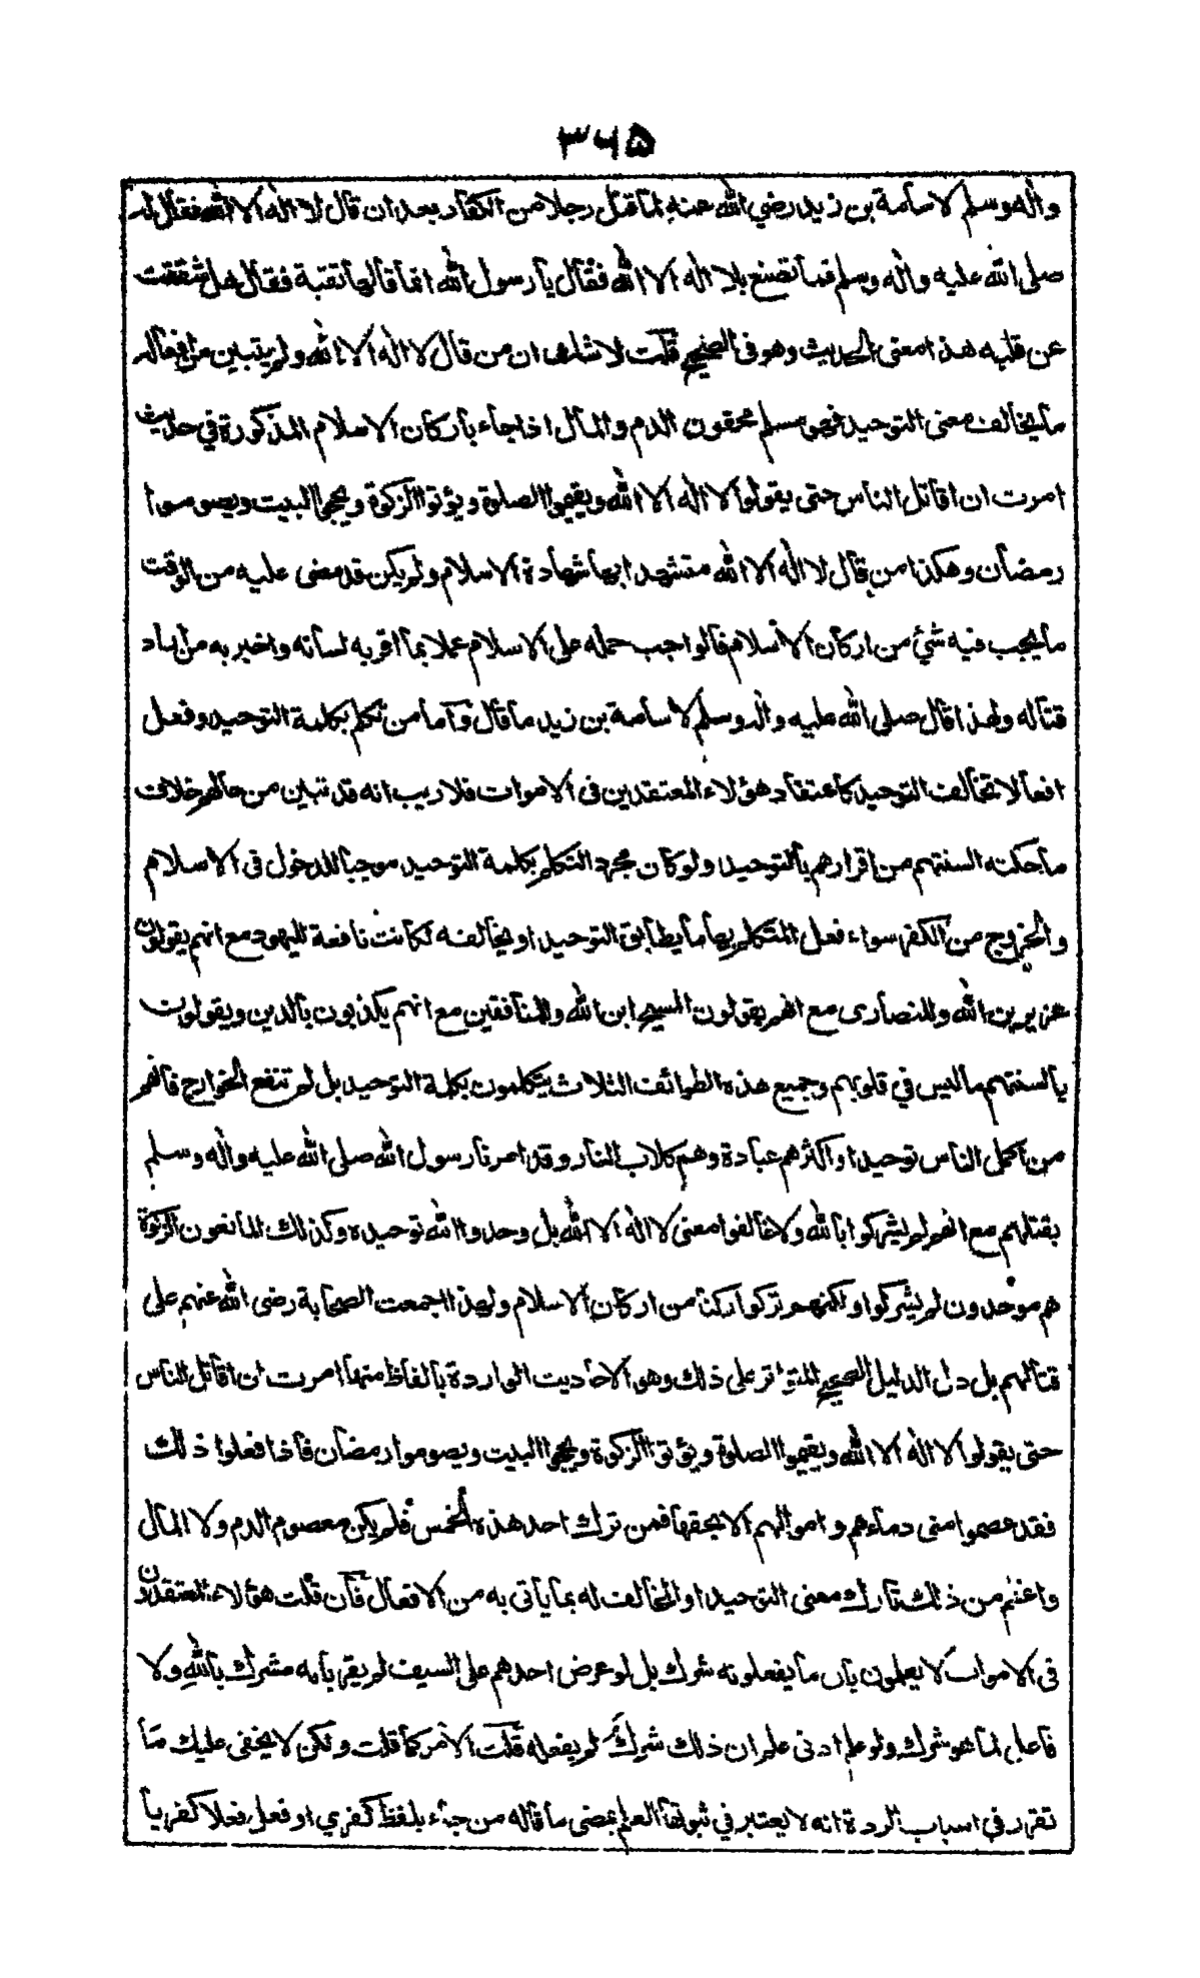 ٣٦٥
واله وسلم لاسامة بن زيد رضي الله عنه لما قتل رجلا من الكفار بعد ان قال لا اله الا الله فقال له
صلى الله عليه واله وسلم فما تصنع بلا اله الا الله فقال يا رسول الله انما قالها تقية فقال هل شققت
عن قلبه هذا معنى الحديث وهو في الصحيح قلت لا شك ان من قال لا اله الا الله ولم يتبين من افعاله
ما يخالف معنى التوحيد فهو مسلم محقون الدم والمال اذا جاء باركان الاسلام المذكورة في حديث
امرت ان اقاتل الناس حتى يقولوا لا اله الا الله ويقيموا الصلوة ويؤتوا الزكوة ويحجوا البيت ويصوموا
رمضان وهكذا من قال لا اله الا الله متشهدا بها شهادة الاسلام ولم يكن قد مضى عليه من الوقت
ما يجب فيه شئ من اركان الاسلام فالواجب حمله على الاسلام عملا بما اقر به لسانه واخبر به من اراد
قتاله ولهذا قال صلى الله عليه واله وسلم لاسامة بن زيد ما قال واما من تكلم بكلمة التوحيد وفعل
افعالا تخالف التوحيد كاعتقاد هؤلاء المعتقدين في الاموات فلا ريب انه قد تبين من حالهم خلاف
ما حكته السنتهم من اقرارهم بالتوحيد ولو كان مجرد التكلم بكلمة التوحيد موجبا للدخول في الاسلام
والخروج من الكفر سواء فعل المتكلم بها ما يطابق التوحيد او يخالفه لكانت نافعة لليهود مع انهم يقولون
عزير بن الله وللنصارى مع انهم يقولون المسيح ابن الله وللمنافقين مع انهم يكذبون بالدين ويقولون
بالسنتهم ما ليس في قلوبهم وجميع هذه الطوائف الثلاث يتكلمون بكلمة التوحيد بل لم تنفع الخوارج فانهم
من اكمل الناس توحيدا واكثرهم عبادة وهم كلاب النار وقد امرنا رسول الله صلى الله عليه واله وسلم
بقتلهم مع انهم لم يشركوا بالله ولا خالفوا معنى لا اله الا الله بل وحدوا الله توحيده وكذلك المانعون الزكوة
هم موحدون لم يشركوا ولكنهم تركوا ركنا من اركان الاسلام ولهذا اجمعت الصحابة رضى الله عنهم على
قتالهم بل دل الدليل الصحيح المتواتر على ذلك وهو الاحاديث الواردة بالفاظ منها امرت ان اقاتل الناس
حتى يقولوا لا اله الا الله ويقيموا الصلوة ويؤتوا الزكوة ويحجوا البيت ويصوموا رمضان فاذا فعلوا ذلك
فقد عصموا منى دماءهم واموالهم الا بحقها فمن ترك احد هذه الخمس فلم يكن معصوم الدم ولا المال
واعظم من ذلك تارك معنى التوحيد او المخالف له بما يأتى به من الافعال فان قلت هؤلاء المعتقدين
في الاموات لا يعلمون بان ما يفعلونه شرك بل لو عرض احدهم على السيف لم يقر بانه مشرك بالله ولا
فاعل لما هو شرك ولو علم ادنى علم ان ذلك شرك لم يفعله قلت الامر كما قلت ولكن لا يخفى عليك ما
تقرر في اسباب الردة انه لا يعتبر في ثبوتها العلم بمعنى ما قاله من جاء بلفظ كفري او فعل فعلا كفريا